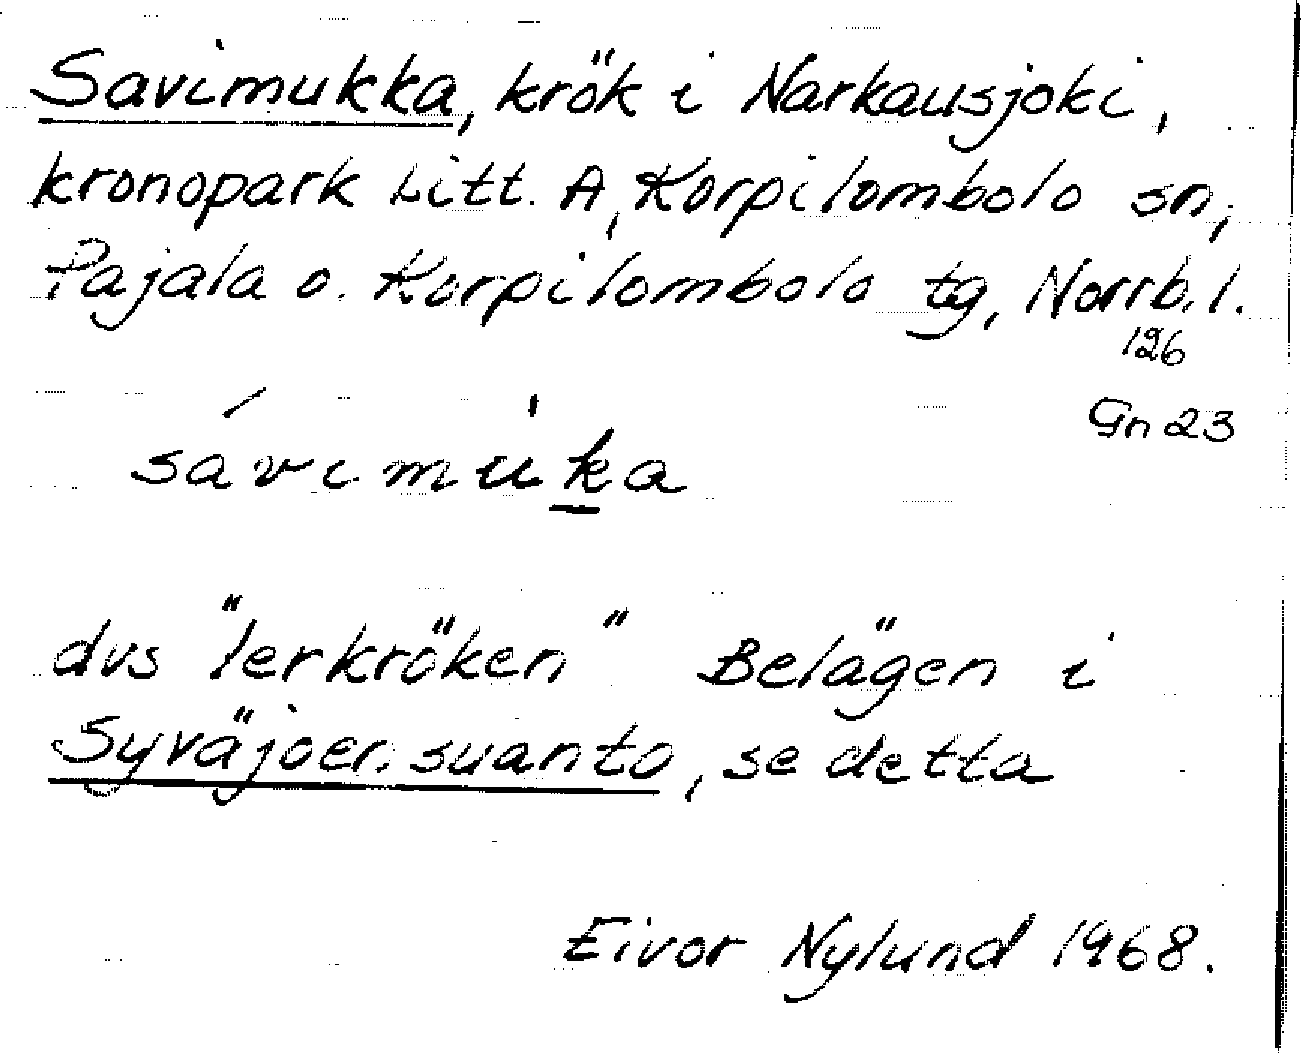 Savimukka, krök i Narkausjoki,
kronopark Litt. A, Korpilombolo sn,
Pajala o. Korpilombolo tg, Norrb. l.
126
Gn 23
sávimu̍k̲a
dvs "lerkröken" Belägen i
Syväjoen suanto, se detta
Eivor Nylund 1968.